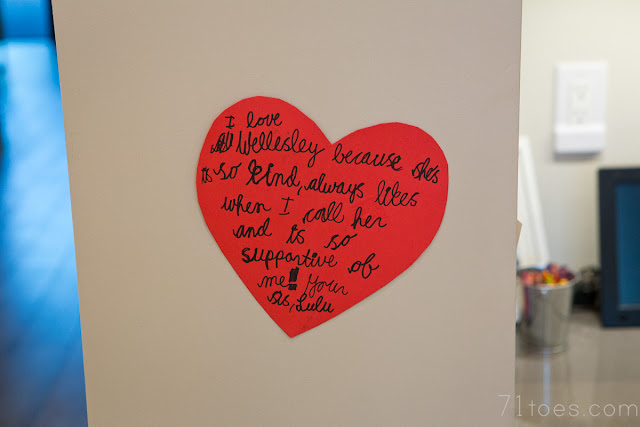 I love
Wellesley because she's
is so kind, always likes
when I call her
and is so
supportive of
me! Your
sis, Lulu
71toes.com